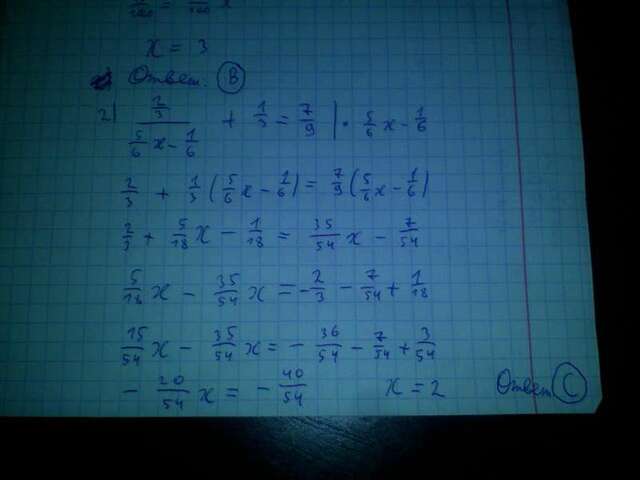 x = 3
Ответ. B
2) (2/3)/(5/6 x - 1/6) + 1/3 = 7/9 | · 5/6 x - 1/6
2/3 + 1/3 (5/6 x - 1/6) = 7/9 (5/6 x - 1/6)
2/3 + 5/18 x - 1/18 = 35/54 x - 7/54
5/18 x - 35/54 x = - 2/3 - 7/54 + 1/18
15/54 x - 35/54 x = - 36/54 - 7/54 + 3/54
- 20/54 x = - 40/54 x = 2 Ответ C